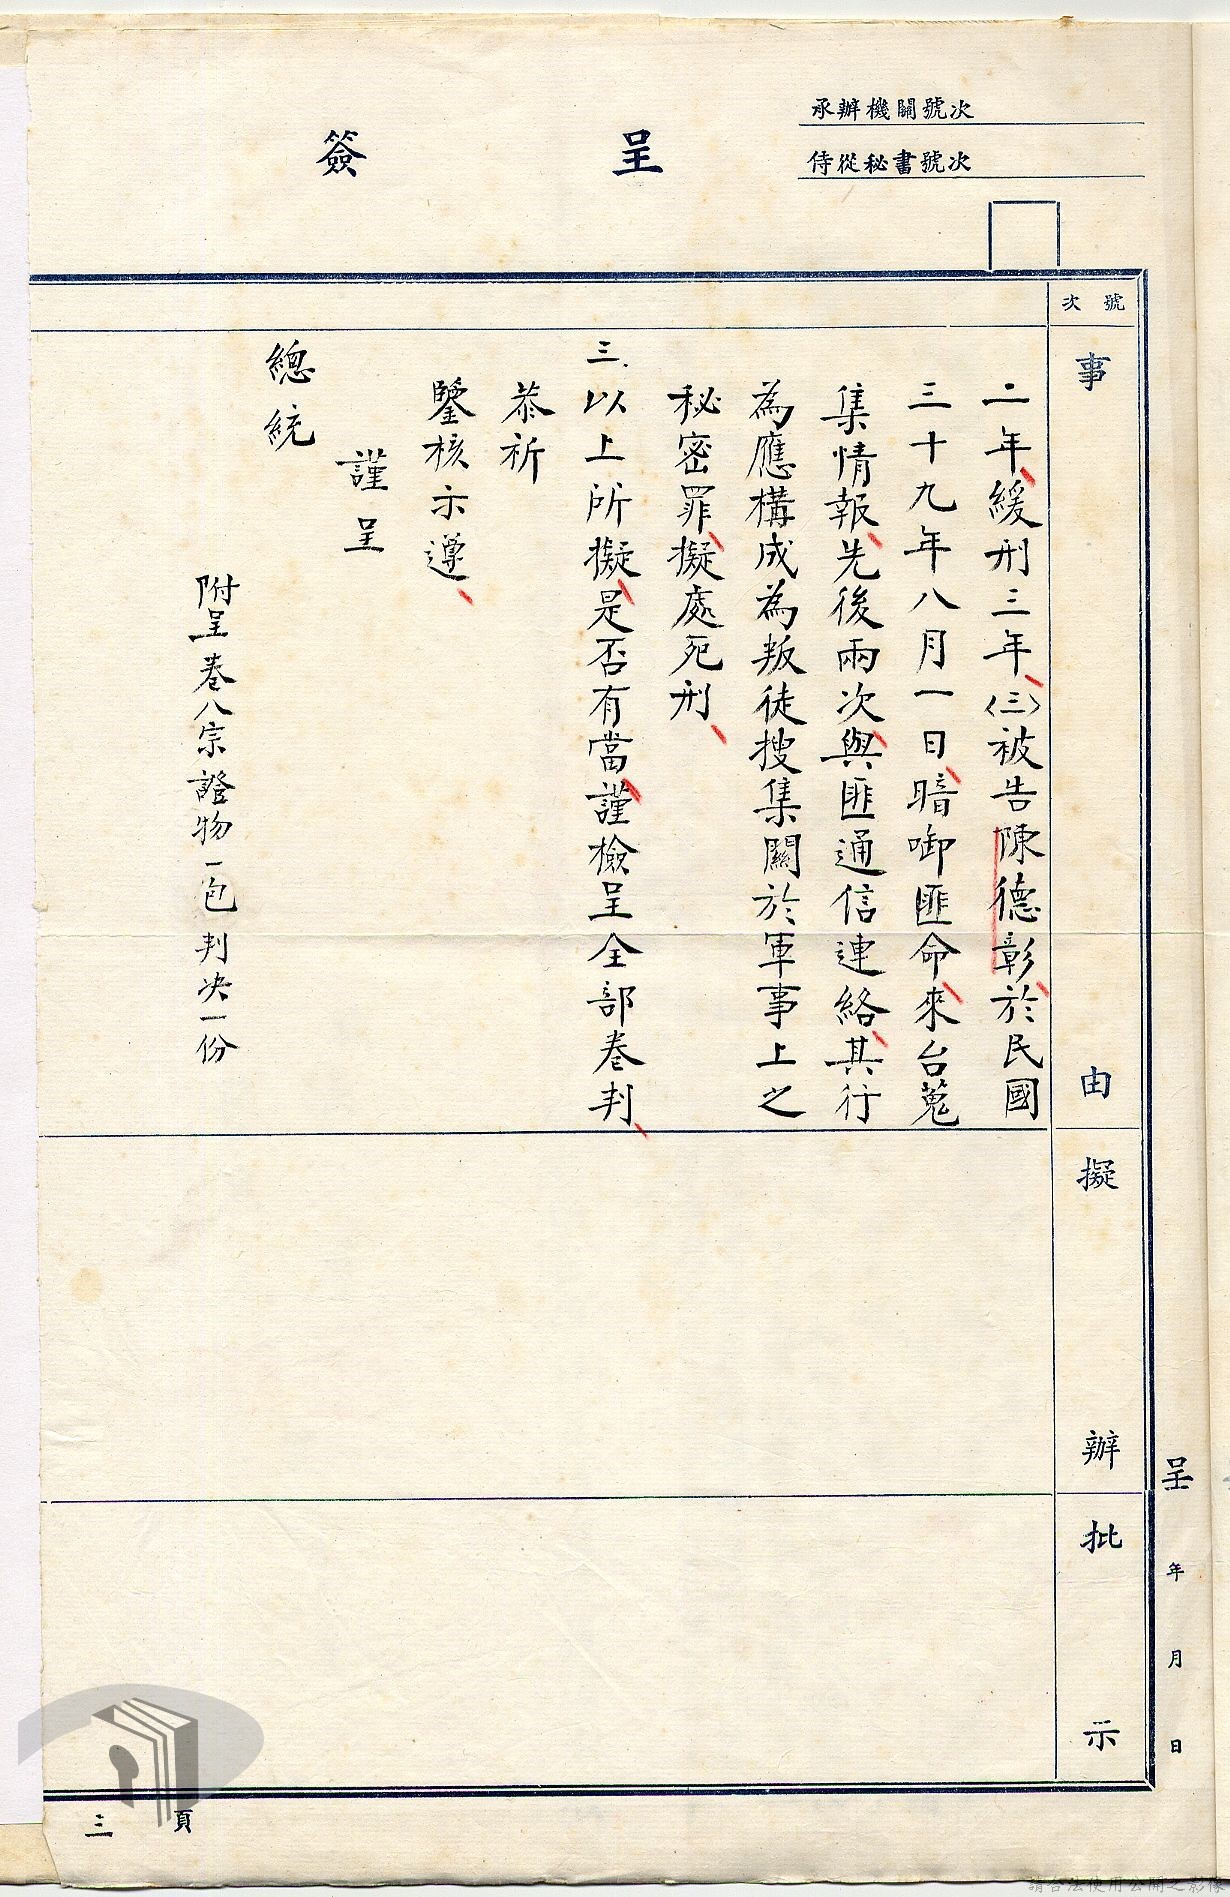 承辦機關號次
侍從秘書號次
簽呈
號次
事由
二年、緩刑三年、〈三〉被告陳德彰、於民國
三十九年八月一日、暗啣匪命、來台蒐
集情報、先後兩次、與匪通信連絡、其行
為應構成為叛徒搜集關於軍事上之
秘密罪、擬處死刑、
三.以上所擬、是否有當、謹檢呈全部卷判、
恭祈
鑒核示遵、
謹呈
總統
附呈卷八宗證物一包判決一份
擬辦
批示
呈 年 月 日
三頁
請合法使用公開之影像